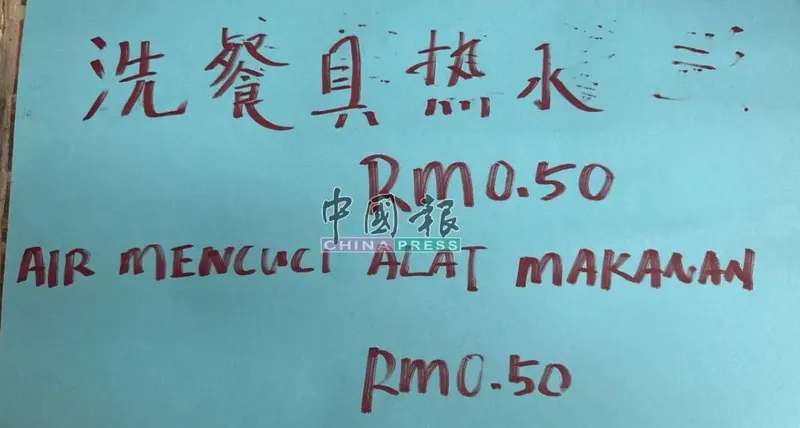 洗餐具热水
RM0.50
中國報
CHINA PRESS
AIR MENCUCI ALAT MAKANAN
RM0.50